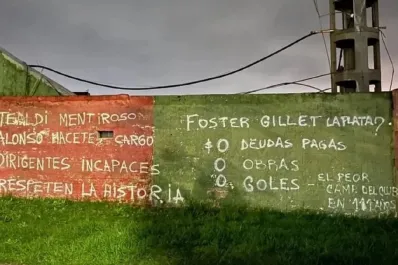 TEBALDI MENTIROSO
ALONSO HACETE CARGO
DIRIGENTES INCAPACES
RESPETEN LA HISTORIA
FOSTER GILLET LA PLATA?
$0 DEUDAS PAGAS
0 OBRAS
0 GOLES - EL PEOR
CAMP. DEL CLUB
EN 111 AÑOS